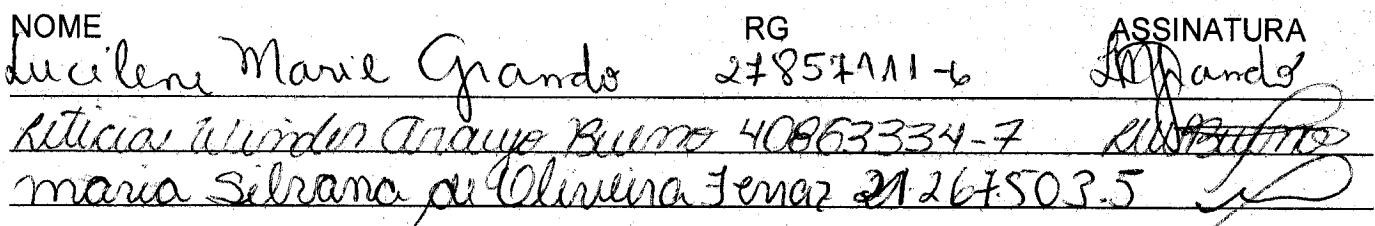 NOME RG ASSINATURA
Lucilene Marie Grando 27857111-6 LMGrando
Leticia Winder Araujo Bueno 40863334-7
maria Silvana de Oliveira Ferraz 21.267.503.5